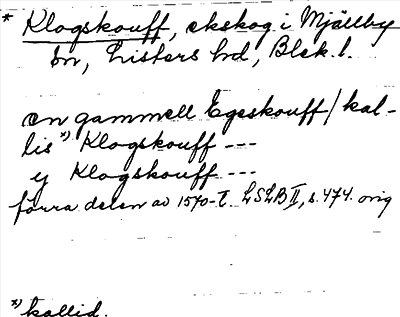 * Klogskouff, ekskog i Mjällby
sn, Listers hd, Blek. l.
en gammell Egeskouff / kal-
lis *) Klogskouff ---
ej Klogskouff ---
förra delen av 1570-t. LSLB II, s. 474. orig
*) kallid.